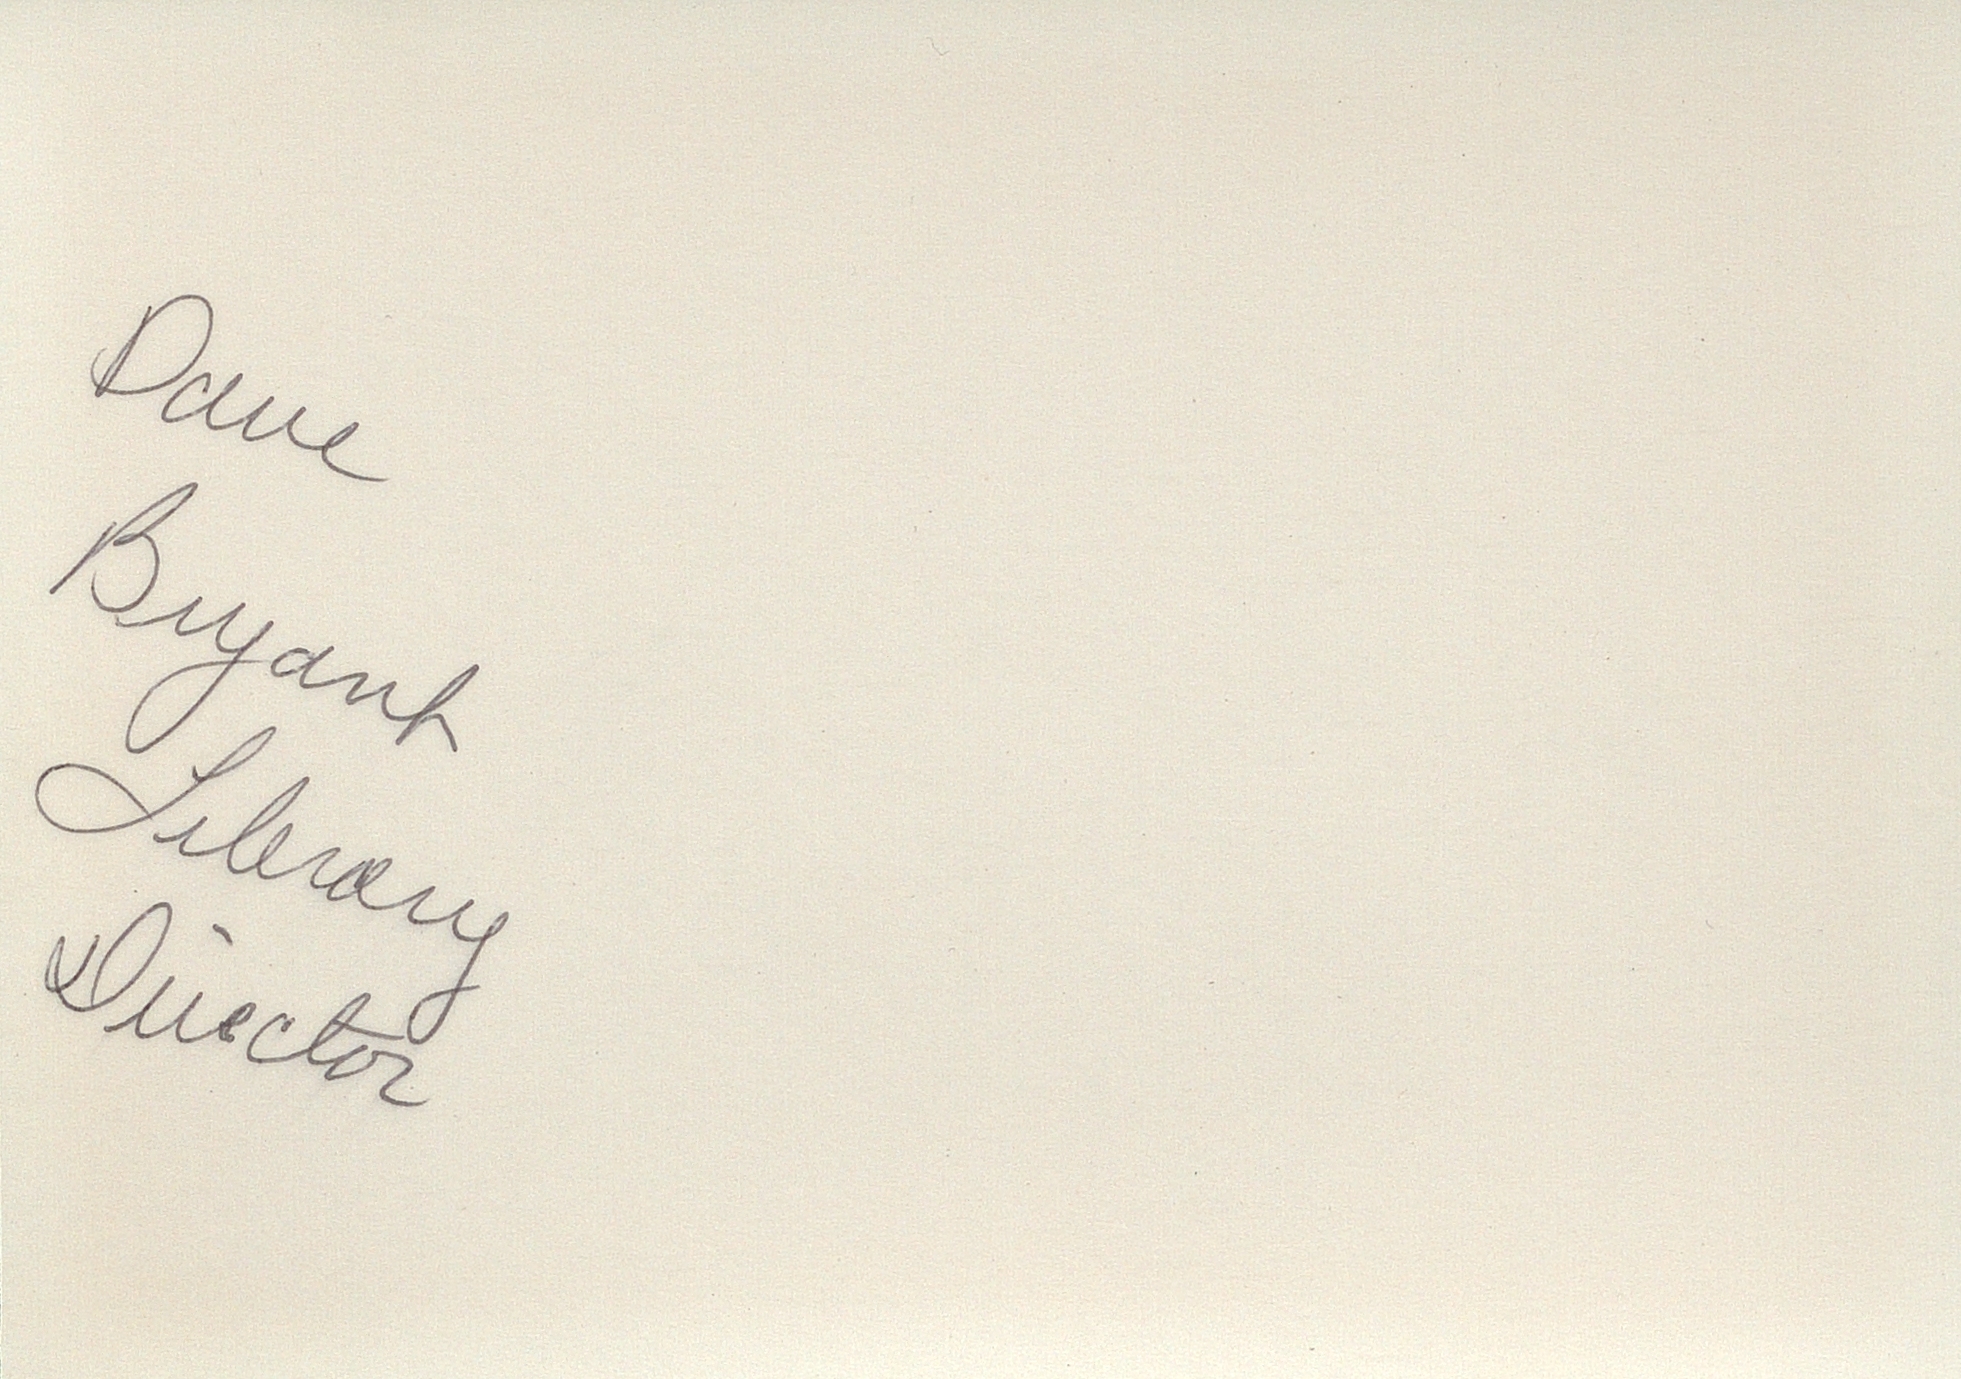 Dave
Bryant
Library
Director